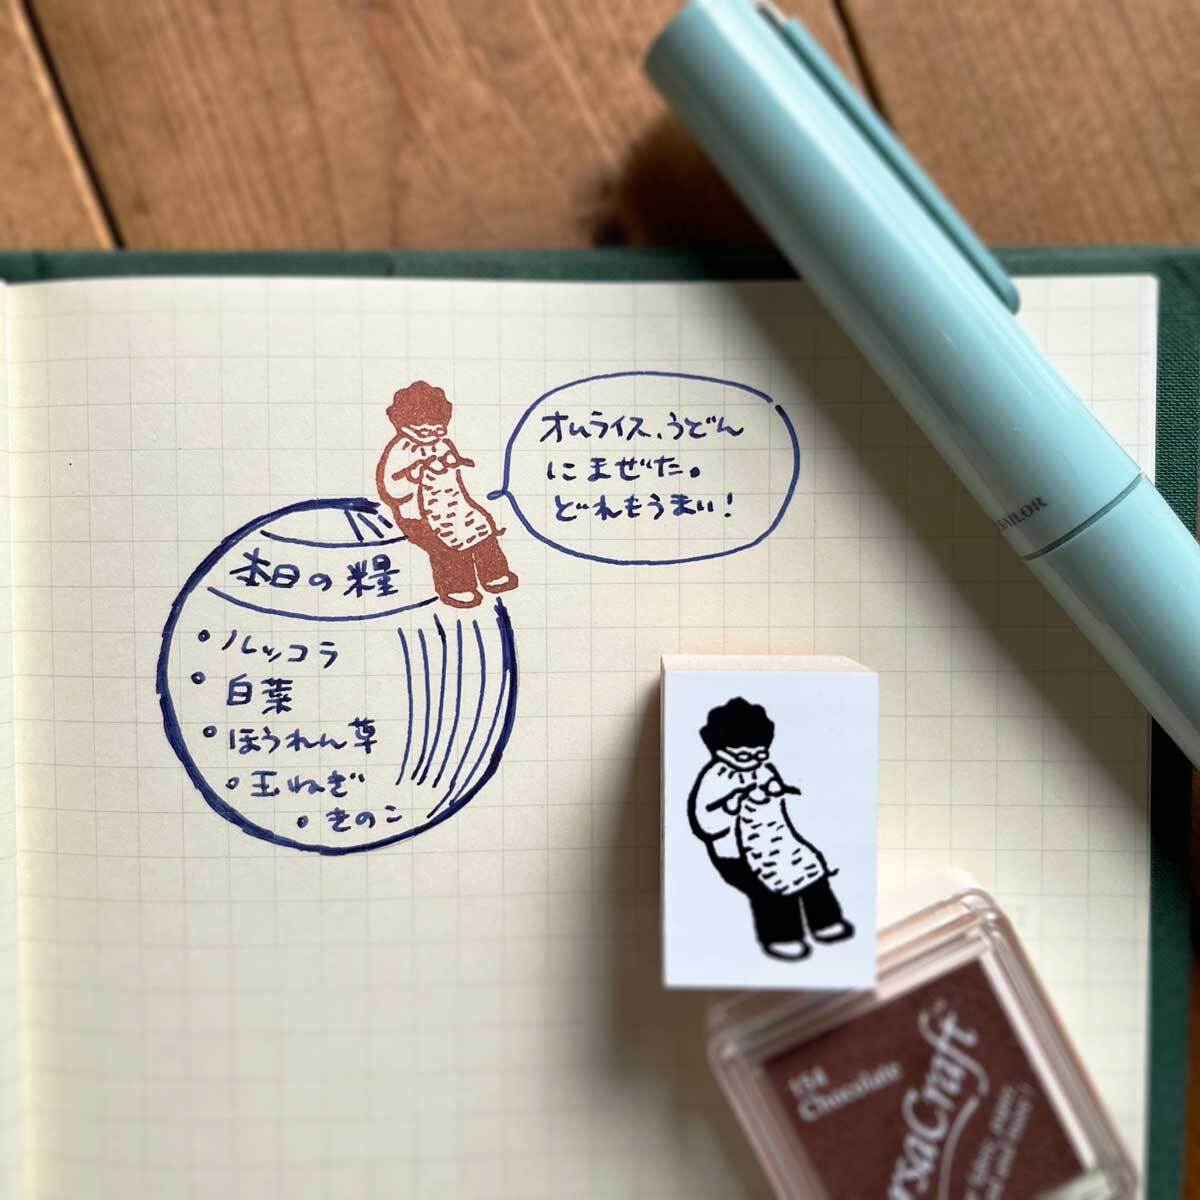 オムライス、うどん
にまぜた。
どれもうまい！
本日の糧
• ルッコラ
• 白菜
• ほうれん草
• 玉ねぎ
• きのこ
SAILOR
154
Chocolate